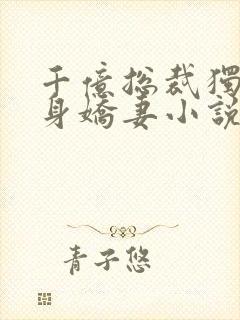 千億总裁獨
身嬌妻小説
青子悠